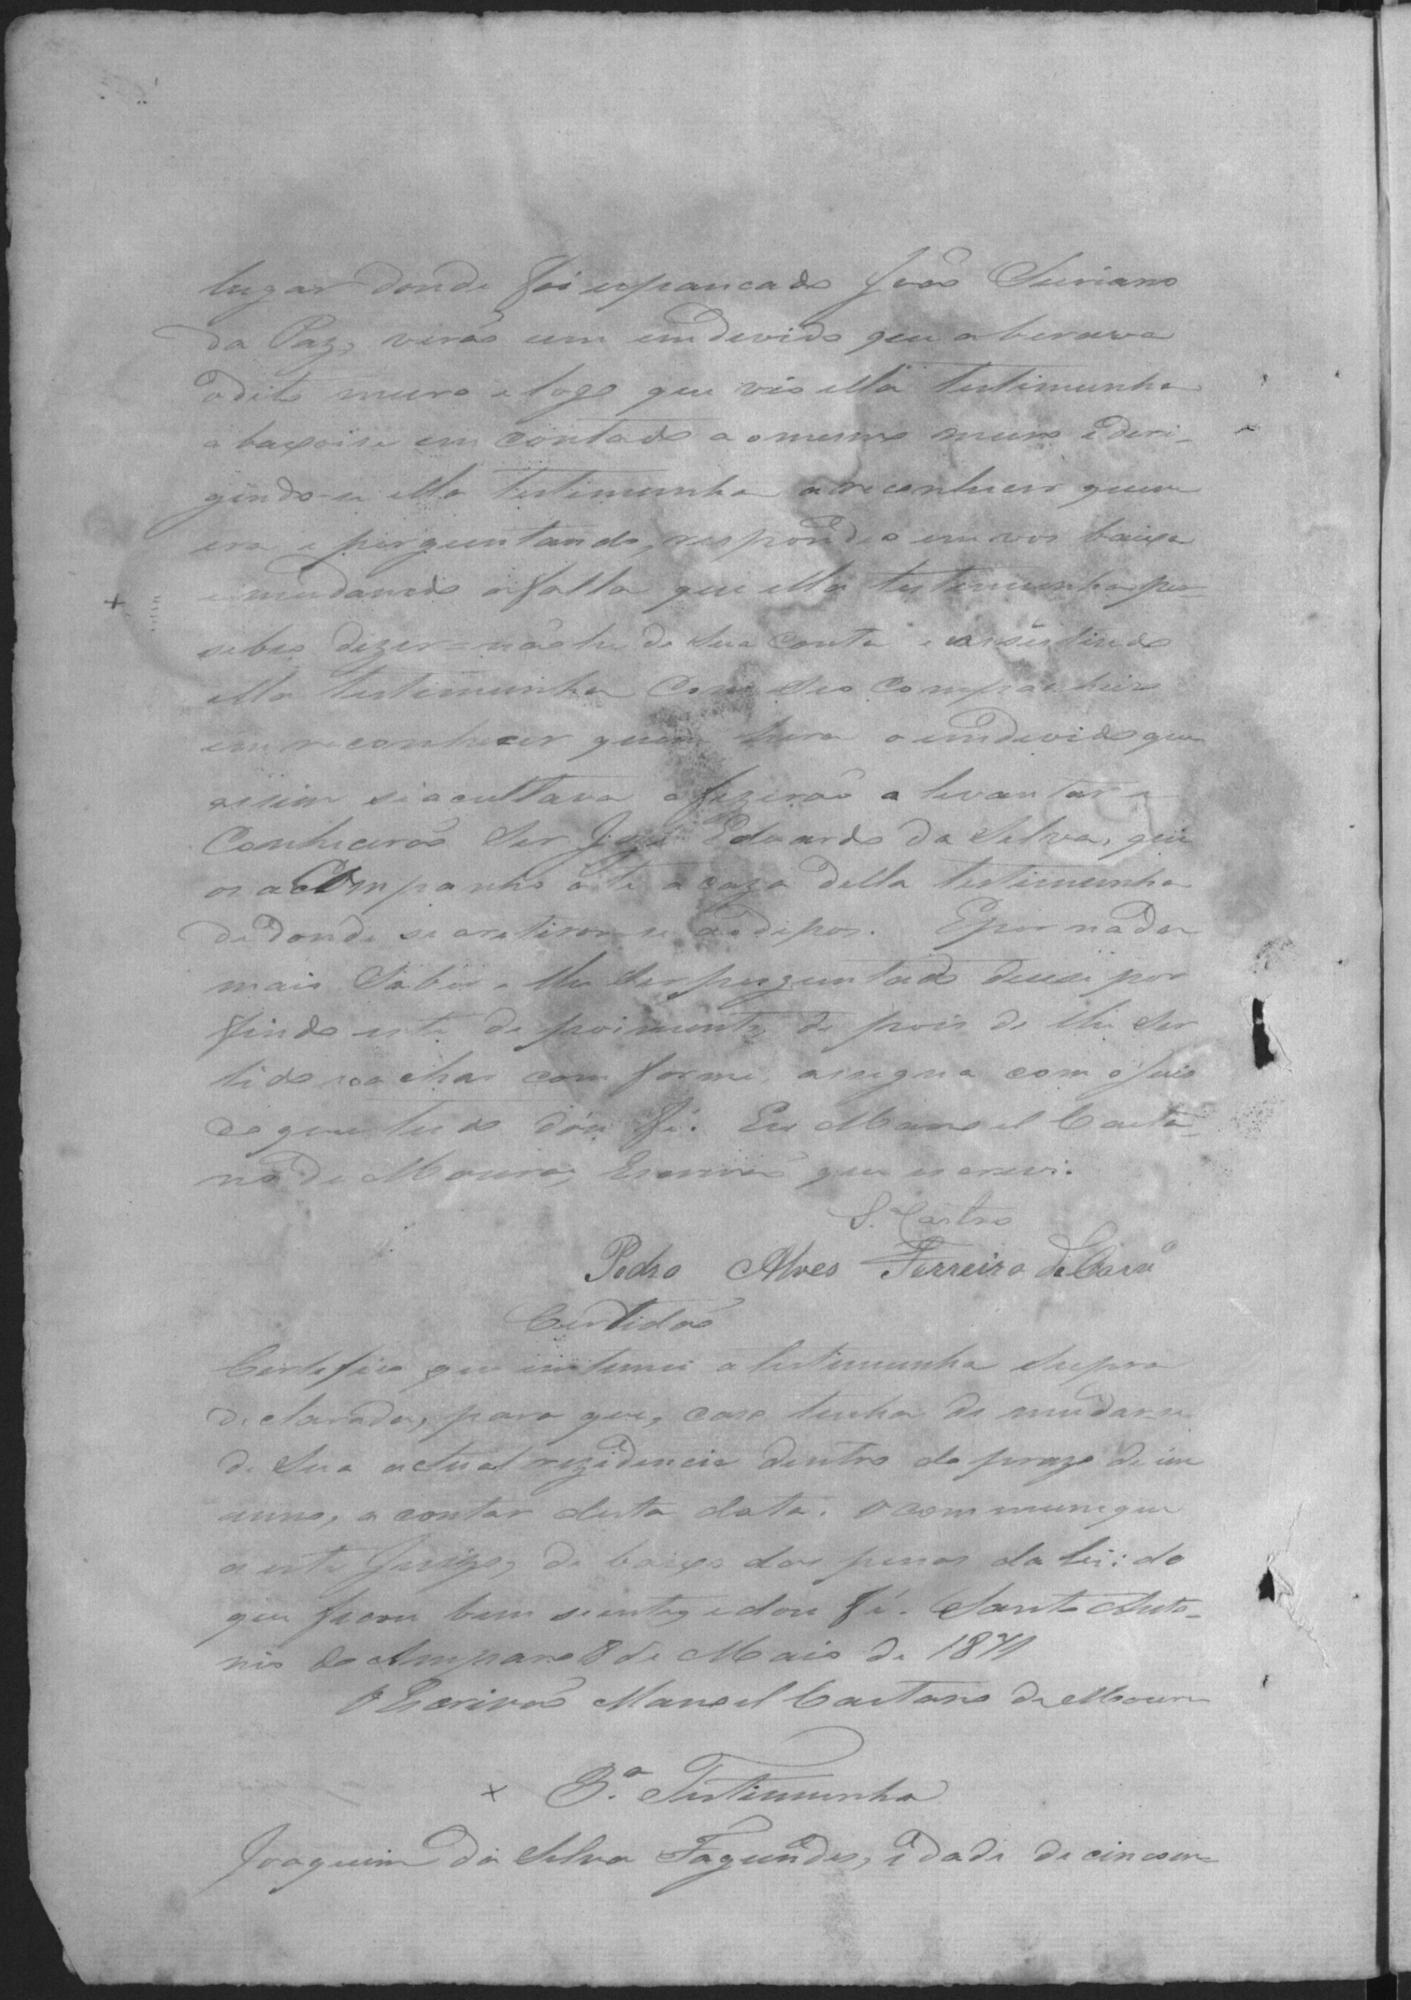 lugar donde foi espancado João Suriano
da Paz, virão um endevido que aberava
o dito muro e logo que vio ella testimunha
abaxoise em contado ao mesmo muro e deri-
gindo-se ella testimunha a reconhecer quem
era e perguntando, respondeo em vos baixa
e mudando a falla que ella testimunha per-
sebeo dizer = não he de sua conta e ensistindo
ella testimunha com seo companheiro
em reconhecer quem hera o endevido que
assim si acultava o fizerão alevantar e
Conhecerão ser José Eduardo da Silva, que
os acompanho até a caza della testimunha
de donde se aretirou-se
mais Saber e lhe ser perguntado deuse por
findo este depoimento, depois de lhe ser
lido e o achar comforme, assigna com o Juis
do que tudo dou fé. Eu Manoel Caeta-
no de Moura, Escrivão que escrevi.
S. Castro
Pedro Alves Ferreira de
Certidão
Certefico que intimei a testimunha supra
declarada, para que, caso tenha de mudar-se
de sua actual rezidencia dentro do prazo de um
anno, a contar desta data, o communique
a este Juizo, debaixo das penas da lei: do
que ficou bem siente, e dou fé. Santo Anto-
nio do Amparo 8 de Maio de 1871
O Escrivão Manoel Caetano de Moura
× 3.ª Testimunha
Joaquim da Silva Fagundes, idade de cincoen-